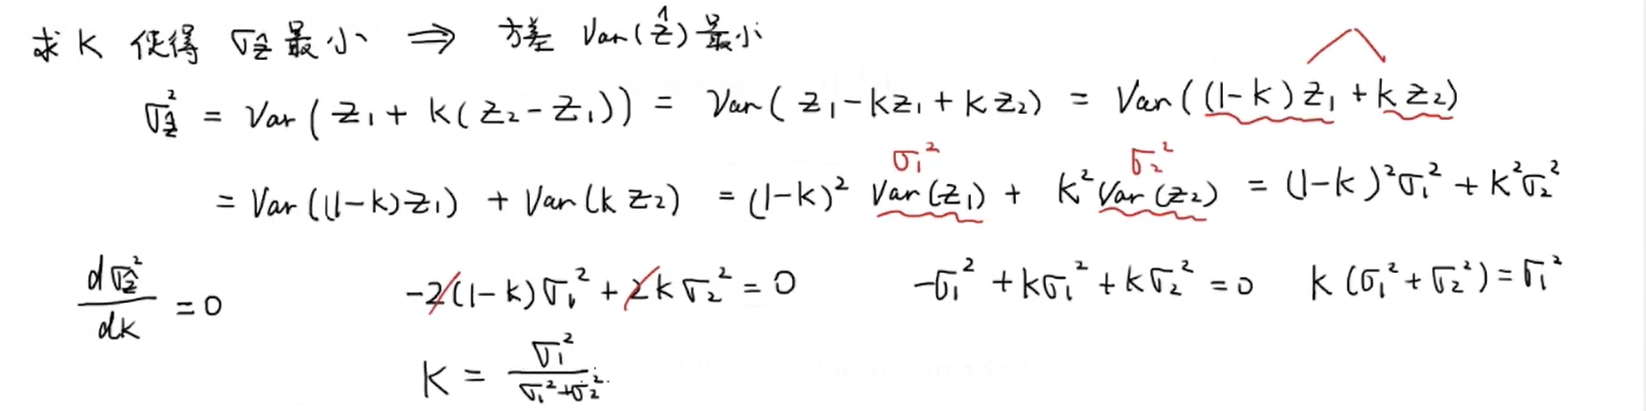 求 K 使得 σẑ 最小 ⇒ 方差 Var(ẑ) 最小
σẑ² = Var(z₁ + k(z₂ - z₁)) = Var(z₁ - kz₁ + kz₂) = Var((1-k)z₁ + kz₂)
σ₁² σ₂²
= Var((1-k)z₁) + Var(kz₂) = (1-k)² Var(z₁) + k² Var(z₂) = (1-k)²σ₁² + k²σ₂²
dσẑ²/dk = 0 -2(1-k)σ₁² + 2kσ₂² = 0 -σ₁² + kσ₁² + kσ₂² = 0 k(σ₁² + σ₂²) = σ₁²
K = σ₁²/(σ₁² + σ₂²)